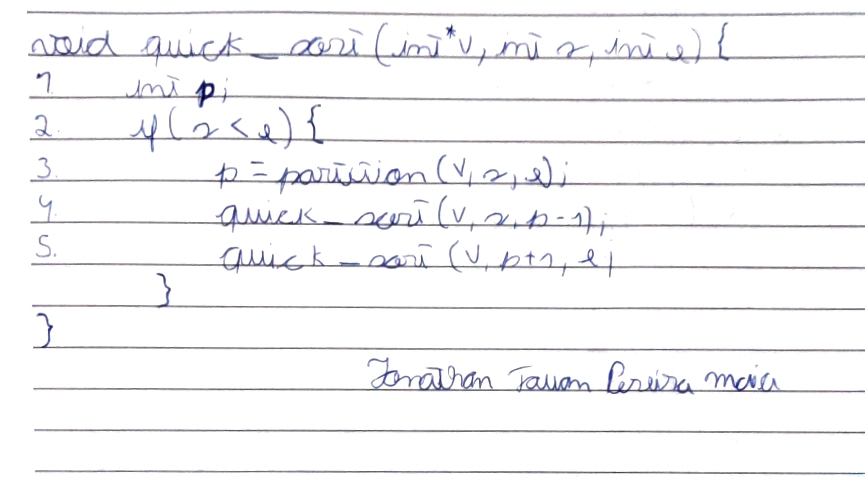 void quick_sort(int*v, int s, int e) {
1 int p;
2. if(s<e) {
3. p = partition(v, s, e);
4. quick_sort(v, s, p-1);
5. quick_sort(v, p+1, e)
}
}
Jonathan Tauan Pereira maia